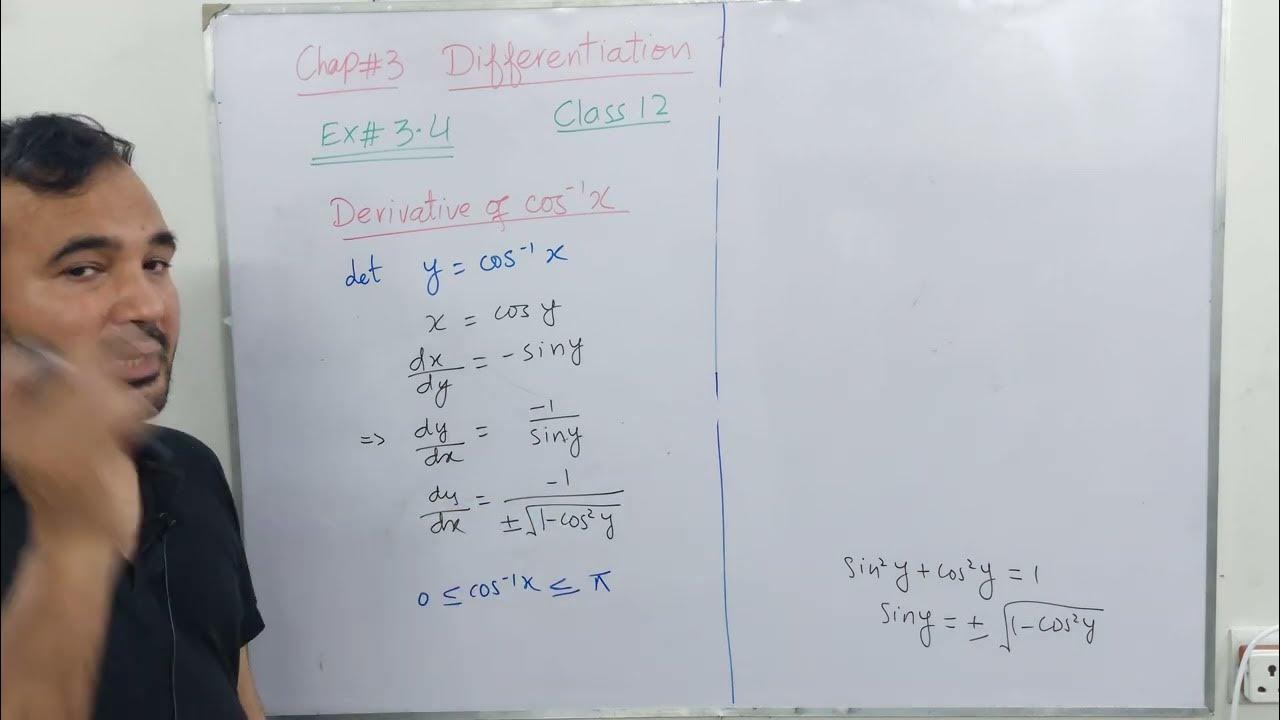 Chap#3 Differentiation
Ex# 3.4 Class 12
Derivative of cos⁻¹x
Let y = cos⁻¹ x
x = cos y
dx/dy = - sin y
=> dy/dx = -1/sin y
dy/dx = -1/±√(1-cos²y)
0 ≤ cos⁻¹x ≤ π
sin²y + cos²y = 1
sin y = ± √(1-cos²y)